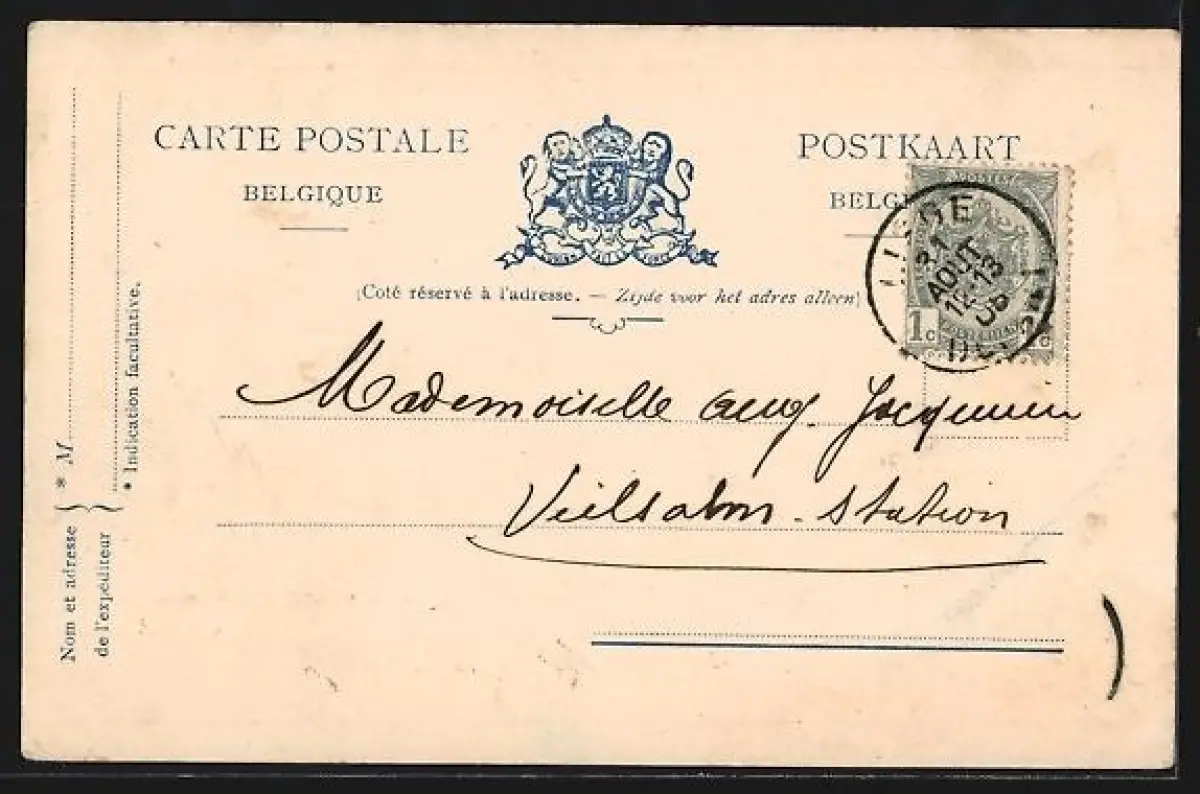 CARTE POSTALE
BELGIQUE
POSTKAART
BELGI
(Coté réservé à l'adresse. — Zijde voor het adres alleen)
POSTES
1c
c
31
AOUT
12-13
Mademoiselle Aug. Jacquemin
Vielsalm. Station
Nom et adresse
de l'expéditeur
* M
* Indication facultative.